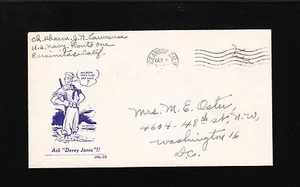 Ch. Pharm. J. N. Lawrence
U.S. Navy, Route one
Encinitas, Calif.
OCEANSIDE, CALIF.
OCT
Mrs. M. E. Oster,
4604-48th St. N.W,
Washington 16
D.C.
Ask "Davey Jones"!!